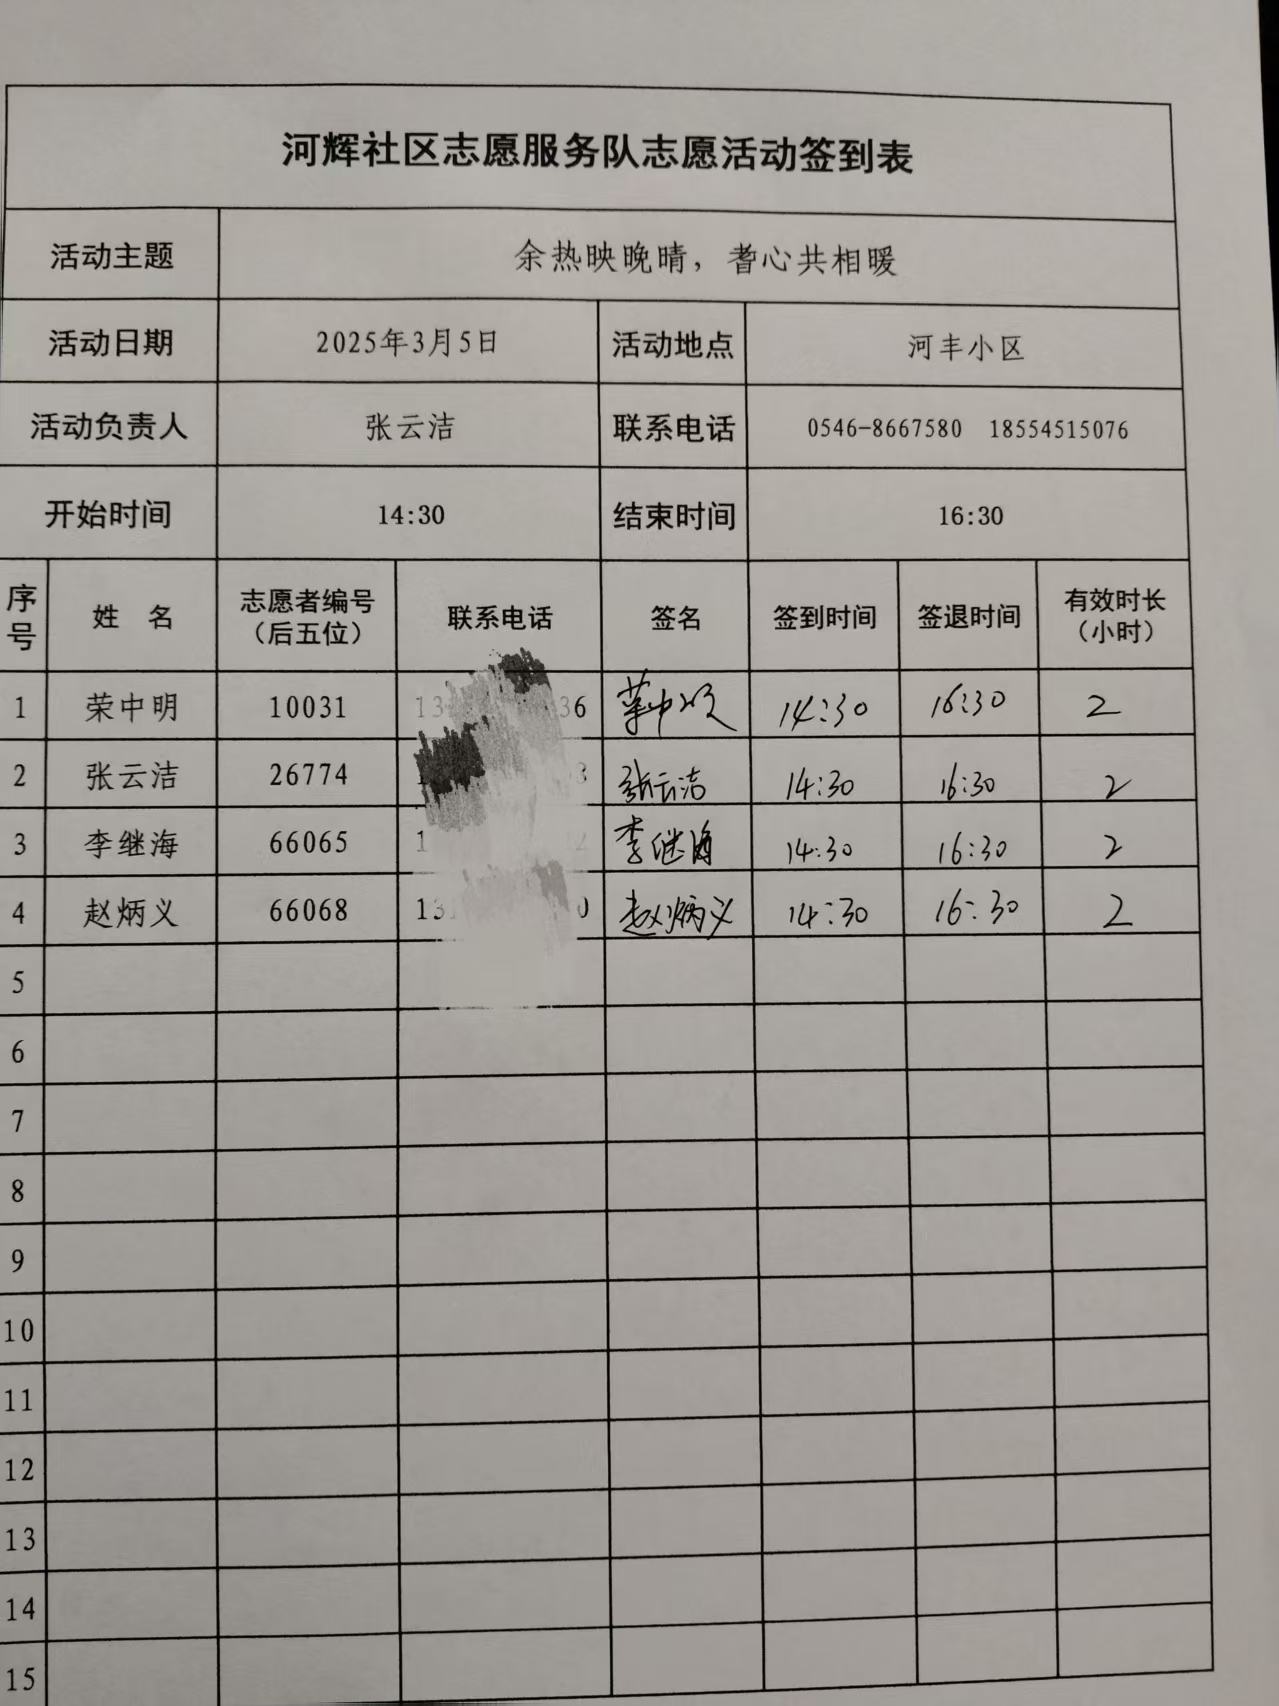 河辉社区志愿服务队志愿活动签到表
活动主题 余热映晚晴，耆心共相暖
活动日期 2025年3月5日 活动地点 河丰小区
活动负责人 张云洁 联系电话 0546-8667580 18554515076
开始时间 14:30 结束时间 16:30
序号 姓名 志愿者编号（后五位） 联系电话 签名 签到时间 签退时间 有效时长（小时）
1 荣中明 10031 13 36 荣中明 14:30 16:30 2
2 张云洁 26774 张云洁 14:30 16:30 2
3 李继海 66065 1 2 李继海 14:30 16:30 2
4 赵炳义 66068 13 0 赵炳义 14:30 16:30 2
5
6
7
8
9
10
11
12
13
14
15